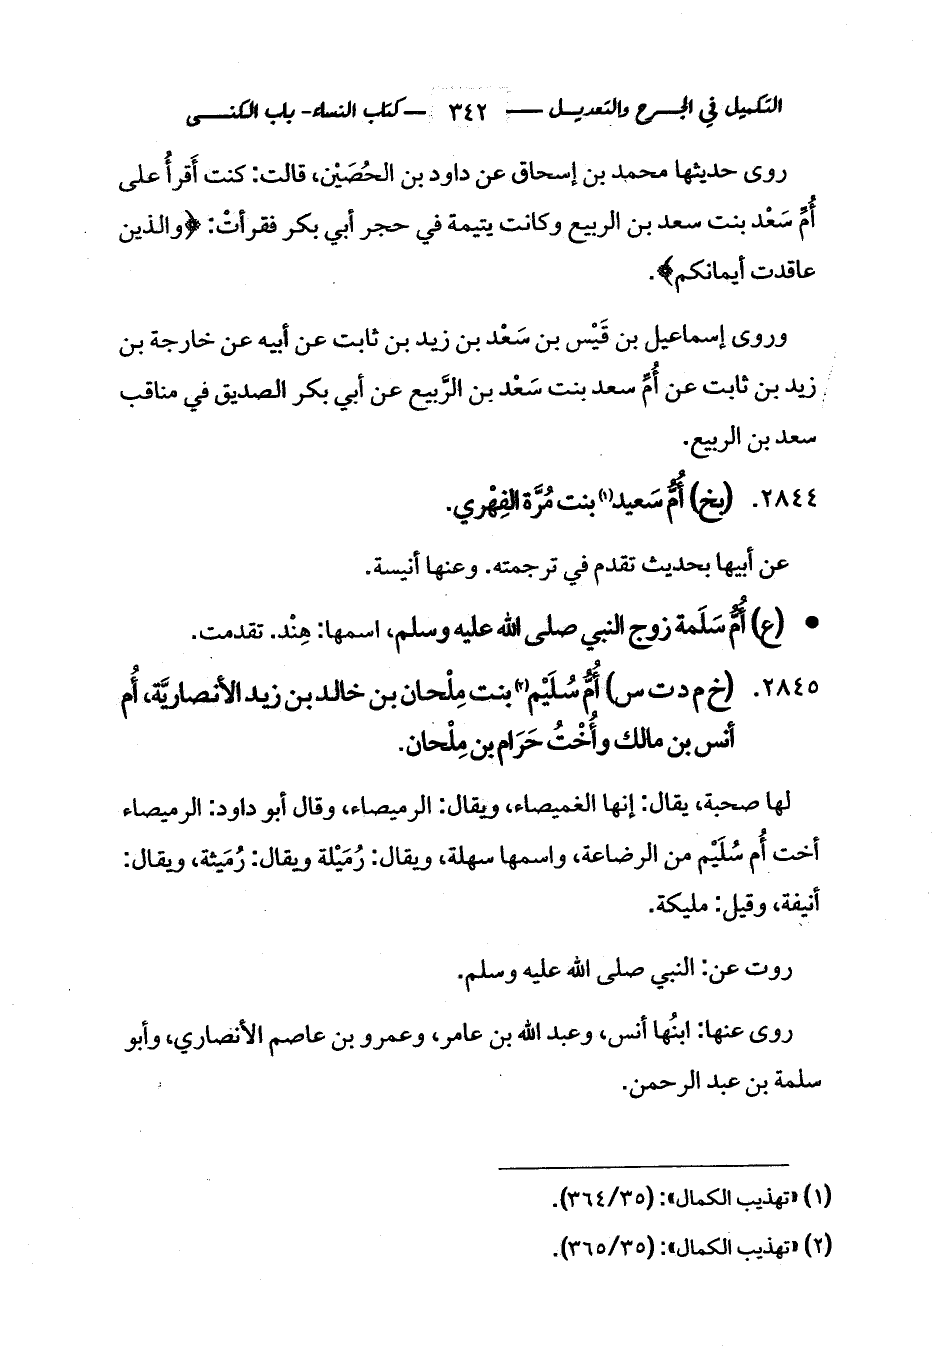 التكميل في الجـــرح والتعديـــل —— ٣٤٢ —— كتاب النساء- باب الكنــــى
روى حديثها محمد بن إسحاق عن داود بن الحُصَيْن، قالت: كنت أَقرأُ على
أُمِّ سَعْد بنت سعد بن الربيع وكانت يتيمة في حجر أبي بكر فقرأتْ: ﴿والذين
عاقدت أيمانكم﴾.
وروى إسماعيل بن قَيْس بن سَعْد بن زيد بن ثابت عن أبيه عن خارجة بن
زيد بن ثابت عن أُمِّ سعد بنت سَعْد بن الرَّبيع عن أبي بكر الصديق في مناقب
سعد بن الربيع.
٢٨٤٤. (بخ) أُمُّ سَعيد(١) بنت مُرَّة الفِهْري.
عن أبيها بحديث تقدم في ترجمته. وعنها أنيسة.
● (ع) أُمُّ سَلَمة زوج النبي صلى الله عليه وسلم، اسمها: هِنْد. تقدمت.
٢٨٤٥. (خ م د ت س) أُمُّ سُلَيْم(٢) بنت مِلْحان بن خالد بن زيد الأنصاريَّة، أُم
أنس بن مالك وأُخْتُ حَرَام بن مِلْحان.
لها صحبة، يقال: إنها الغميصاء، ويقال: الرميصاء، وقال أبو داود: الرميصاء
أخت أُم سُلَيْم من الرضاعة، واسمها سهلة، ويقال: رُمَيْلة ويقال: رُمَيثة، ويقال:
أنيفة، وقيل: مليكة.
روت عن: النبي صلى الله عليه وسلم.
روى عنها: ابنُها أنس، وعبد الله بن عامر، وعمرو بن عاصم الأنصاري، وأبو
سلمة بن عبد الرحمن.
(١) «تهذيب الكمال»: (٣٦٤/٣٥).
(٢) «تهذيب الكمال»: (٣٦٥/٣٥).